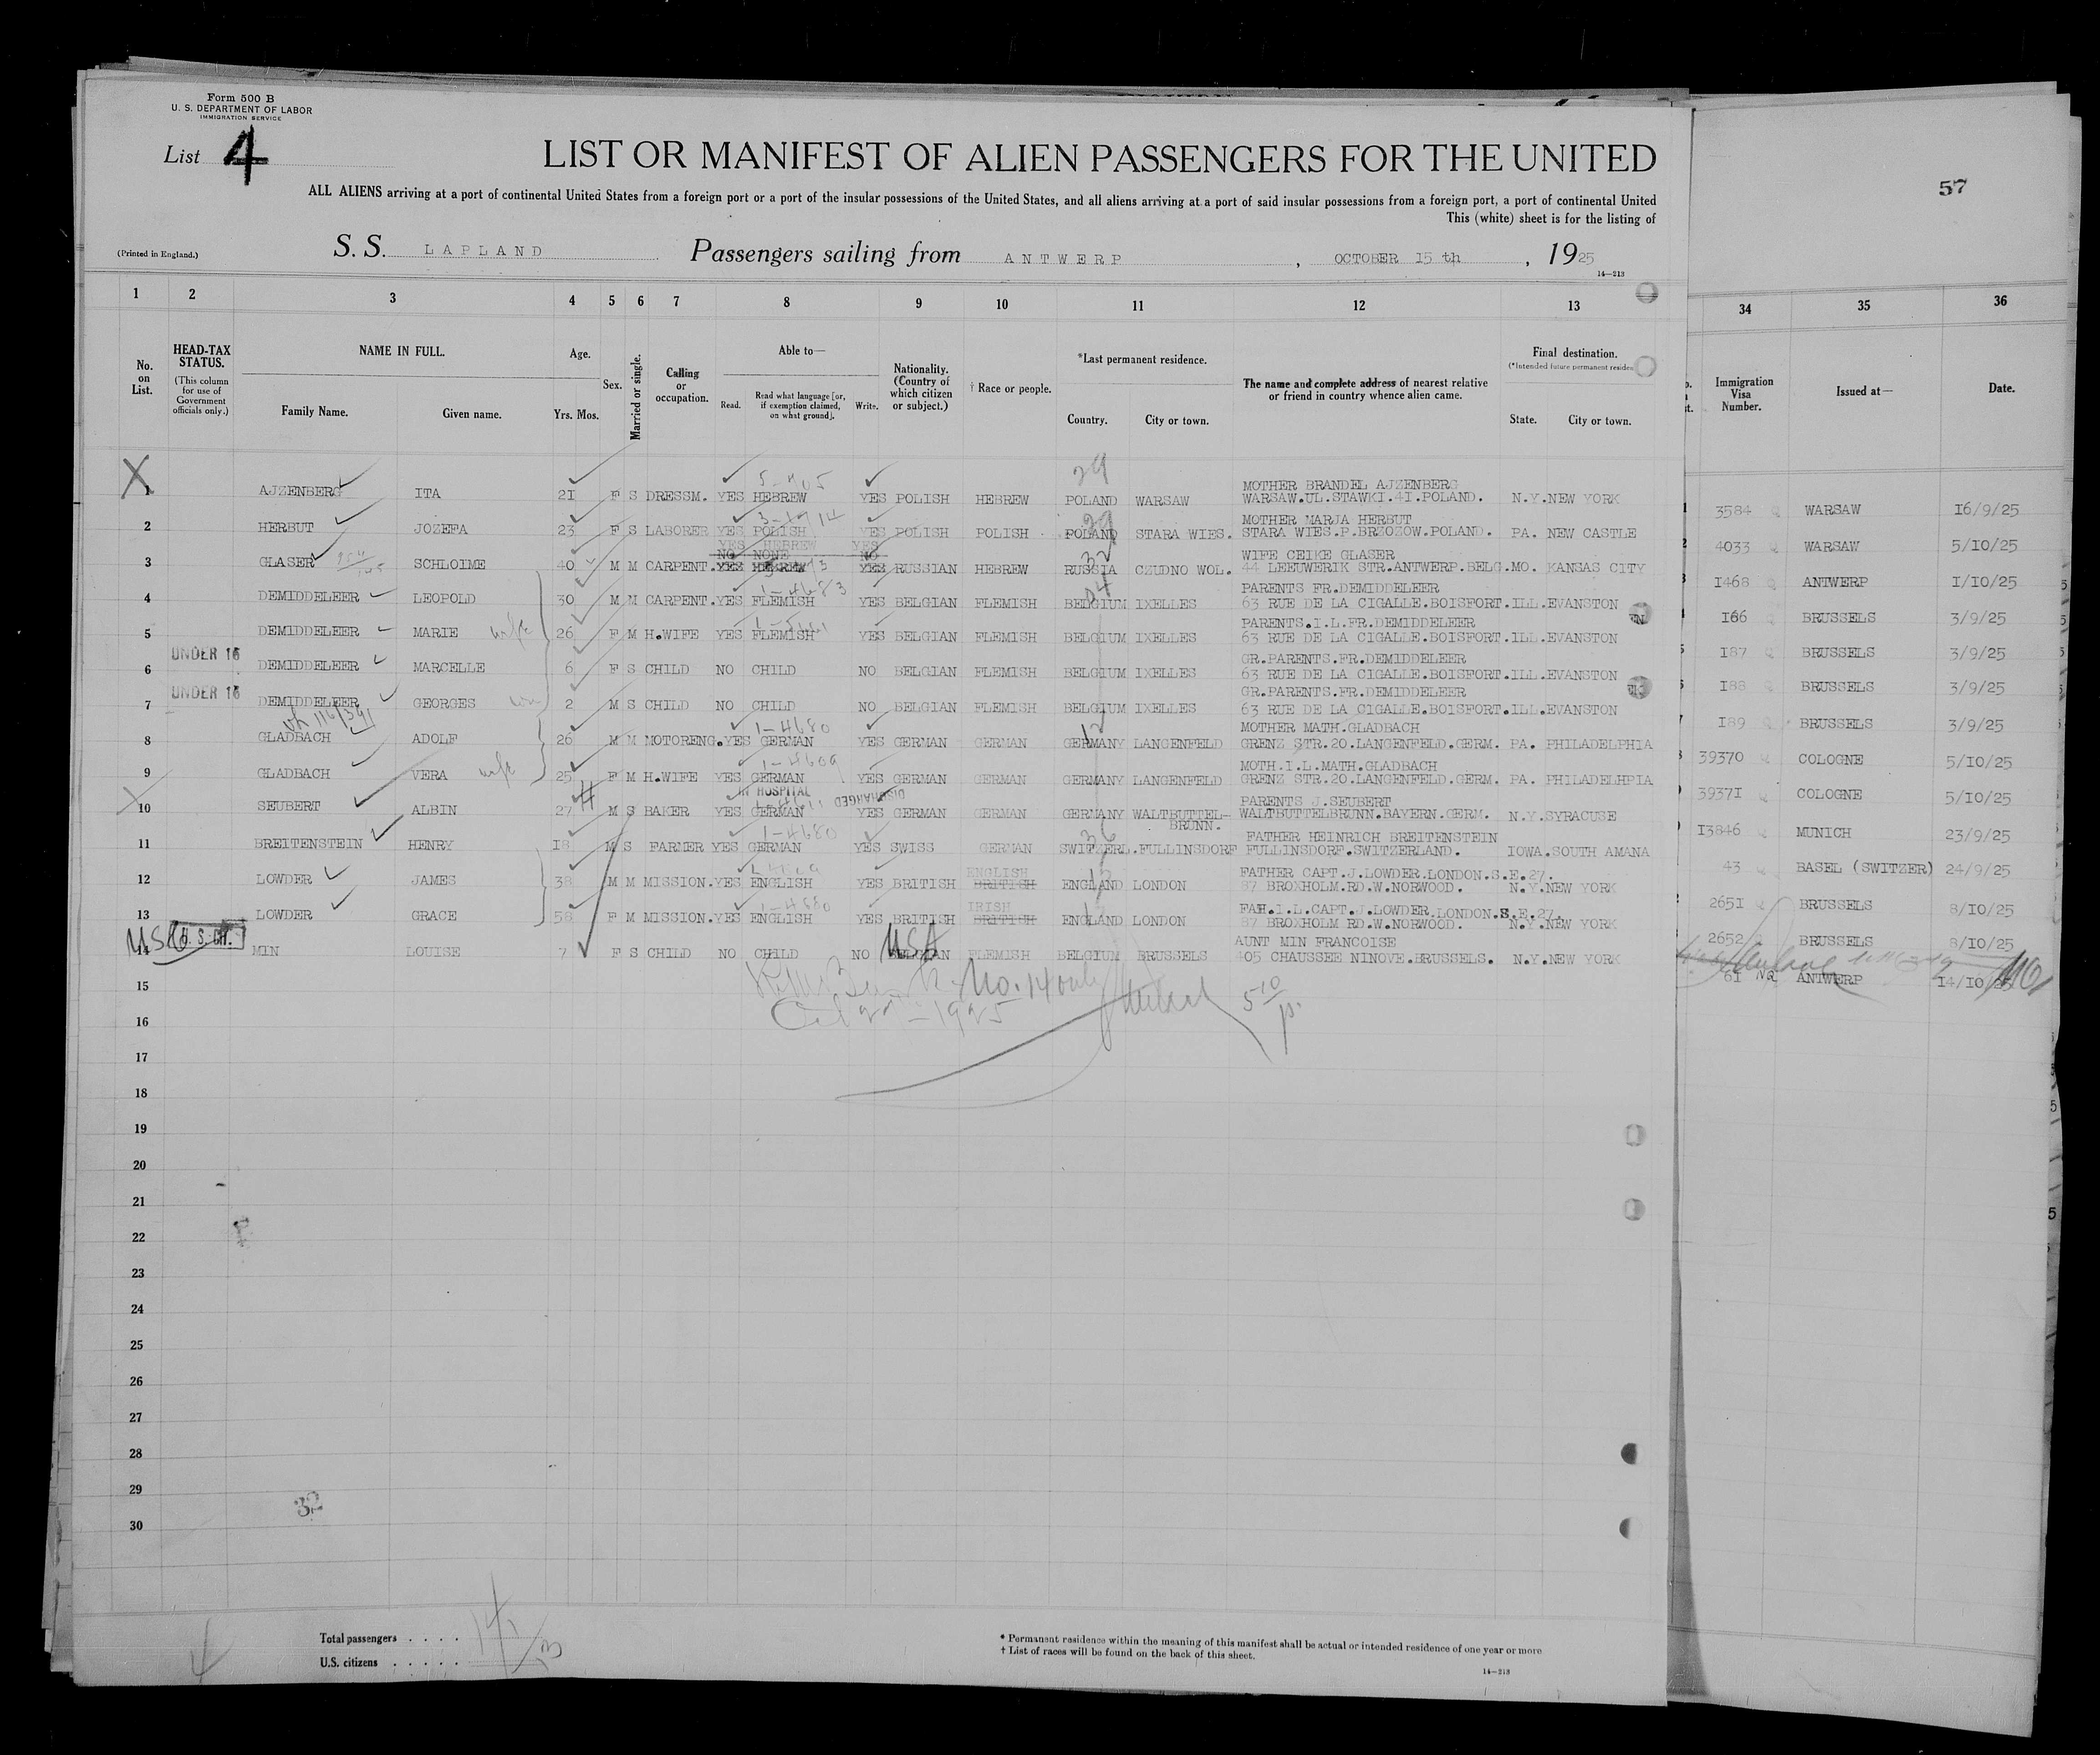 Form 500 B
U. S. DEPARTMENT OF LABOR
IMMIGRATION SERVICE
List 4
LIST OR MANIFEST OF ALIEN PASSENGERS FOR THE UNITED
ALL ALIENS arriving at a port of continental United States from a foreign port or a port of the insular possessions of the United States, and all aliens arriving at a port of said insular possessions from a foreign port, a port of continental United
This (white) sheet is for the listing of
57
(Printed in England.)
S. S. LAPLAND Passengers sailing from ANTWERP, OCTOBER 15 th, 1925
14—213
1 2 3 4 5 6 7 8 9 10 11 12 13 34 35 36
No. on List.
HEAD-TAX STATUS.
(This column for use of Government officials only.)
NAME IN FULL.
Family Name. Given name.
Age.
Yrs. Mos.
Sex.
Married or single.
Calling or occupation.
Able to—
Read. Read what language [or, if exemption claimed, on what ground]. Write.
Nationality. (Country of which citizen or subject.)
† Race or people.
*Last permanent residence.
Country. City or town.
The name and complete address of nearest relative or friend in country whence alien came.
Final destination.
(*Intended future permanent residen
State. City or town.
Immigration Visa Number.
Issued at—
Date.
29
MOTHER BRANDEL AJZENBERG
1 AJZENBERG ITA 21 F S DRESSM. YES HEBREW YES POLISH HEBREW POLAND WARSAW WARSAW.UL.STAWKI.41.POLAND. N.Y. NEW YORK 3584 WARSAW 16/9/25
MOTHER MARJA HERBUT
2 HERBUT JOZEFA 23 F S LABORER YES POLISH YES POLISH POLISH POLAND STARA WIES. STARA WIES.P.BRZOZOW.POLAND. PA. NEW CASTLE 4033 WARSAW 5/10/25
YES HEBREW YES
NO NONE NO
WIFE CEIKE GLASER
3 GLASER SCHLOIME 40 M M CARPENT. YES HEBREW YES RUSSIAN HEBREW RUSSIA CZUDNO WOL. 44 LEEUWERIK STR.ANTWERP.BELG. MO. KANSAS CITY 1468 ANTWERP 1/10/25
PARENTS FR.DEMIDDELEER
4 DEMIDDELEER LEOPOLD 30 M M CARPENT. YES FLEMISH YES BELGIAN FLEMISH BELGIUM IXELLES 63 RUE DE LA CIGALLE.BOISFORT. ILL. EVANSTON 166 BRUSSELS 3/9/25
PARENTS.I.L.FR.DEMIDDELEER
5 DEMIDDELEER MARIE wife 26 F M H.WIFE YES FLEMISH YES BELGIAN FLEMISH BELGIUM IXELLES 63 RUE DE LA CIGALLE.BOISFORT. ILL. EVANSTON 187 BRUSSELS 3/9/25
UNDER 16
GR.PARENTS.FR.DEMIDDELEER
6 DEMIDDELEER MARCELLE 6 F S CHILD NO CHILD NO BELGIAN FLEMISH BELGIUM IXELLES 63 RUE DE LA CIGALLE.BOISFORT. ILL. EVANSTON 188 BRUSSELS 3/9/25
UNDER 16
GR.PARENTS.FR.DEMIDDELEER
7 DEMIDDELEER GEORGES 2 M S CHILD NO CHILD NO BELGIAN FLEMISH BELGIUM IXELLES 63 RUE DE LA CIGALLE.BOISFORT. ILL. EVANSTON 189 BRUSSELS 3/9/25
1-4680
MOTHER MATH.GLADBACH
8 GLADBACH ADOLF 26 M M MOTORENG. YES GERMAN YES GERMAN GERMAN GERMANY LANGENFELD GRENZ STR.20.LANGENFELD.GERM. PA. PHILADELPHIA 39370 COLOGNE 5/10/25
1-4609
MOTH.I.L.MATH.GLADBACH
9 GLADBACH VERA wife 25 F M H.WIFE YES GERMAN YES GERMAN GERMAN GERMANY LANGENFELD GRENZ STR.20.LANGENFELD.GERM. PA. PHILADELHPIA 39371 COLOGNE 5/10/25
IN HOSPITAL DISCHARGED
PARENTS J.SEUBERT
10 SEUBERT ALBIN 27 M S BAKER YES GERMAN YES GERMAN GERMAN GERMANY WALTBUTTEL-BRUNN. WALTBUTTELBRUNN.BAYERN.GERM. N.Y. SYRACUSE 13846 MUNICH 23/9/25
1-4680
FATHER HEINRICH BREITENSTEIN
11 BREITENSTEIN HENRY 18 M S FARMER YES GERMAN YES SWISS GERMAN SWITZERL. FULLINSDORF FULLINSDORF.SWITZERLAND. IOWA. SOUTH AMANA 43 BASEL (SWITZER) 24/9/25
ENGLISH
FATHER CAPT.J.LOWDER.LONDON.S.E.27.
12 LOWDER JAMES 38 M M MISSION. YES ENGLISH YES BRITISH BRITISH ENGLAND LONDON 87 BROXHOLM.RD.W.NORWOOD. N.Y. NEW YORK 2651 BRUSSELS 8/10/25
1-4680
IRISH
FAH.I.L.CAPT.J.LOWDER.LONDON.S.E.27.
13 LOWDER GRACE 58 F M MISSION. YES ENGLISH YES BRITISH BRITISH ENGLAND LONDON 87 BROXHOLM RD.W.NORWOOD. N.Y. NEW YORK 2652 BRUSSELS 8/10/25
U. S. CIT. USA
AUNT MIN FRANCOISE
14 MIN LOUISE 7 F S CHILD NO CHILD NO BELGIAN FLEMISH BELGIUM BRUSSELS 405 CHAUSSEE NINOVE.BRUSSELS. N.Y. NEW YORK 61 NQ ANTWERP 14/10/25
No. 14 only
1925
15
16
17
18
19
20
21
22
23
24
25
26
27
28
29
30
32
Total passengers . . . .
U.S. citizens . . . . .
* Permanent residence within the meaning of this manifest shall be actual or intended residence of one year or more
† List of races will be found on the back of this sheet.
14—213